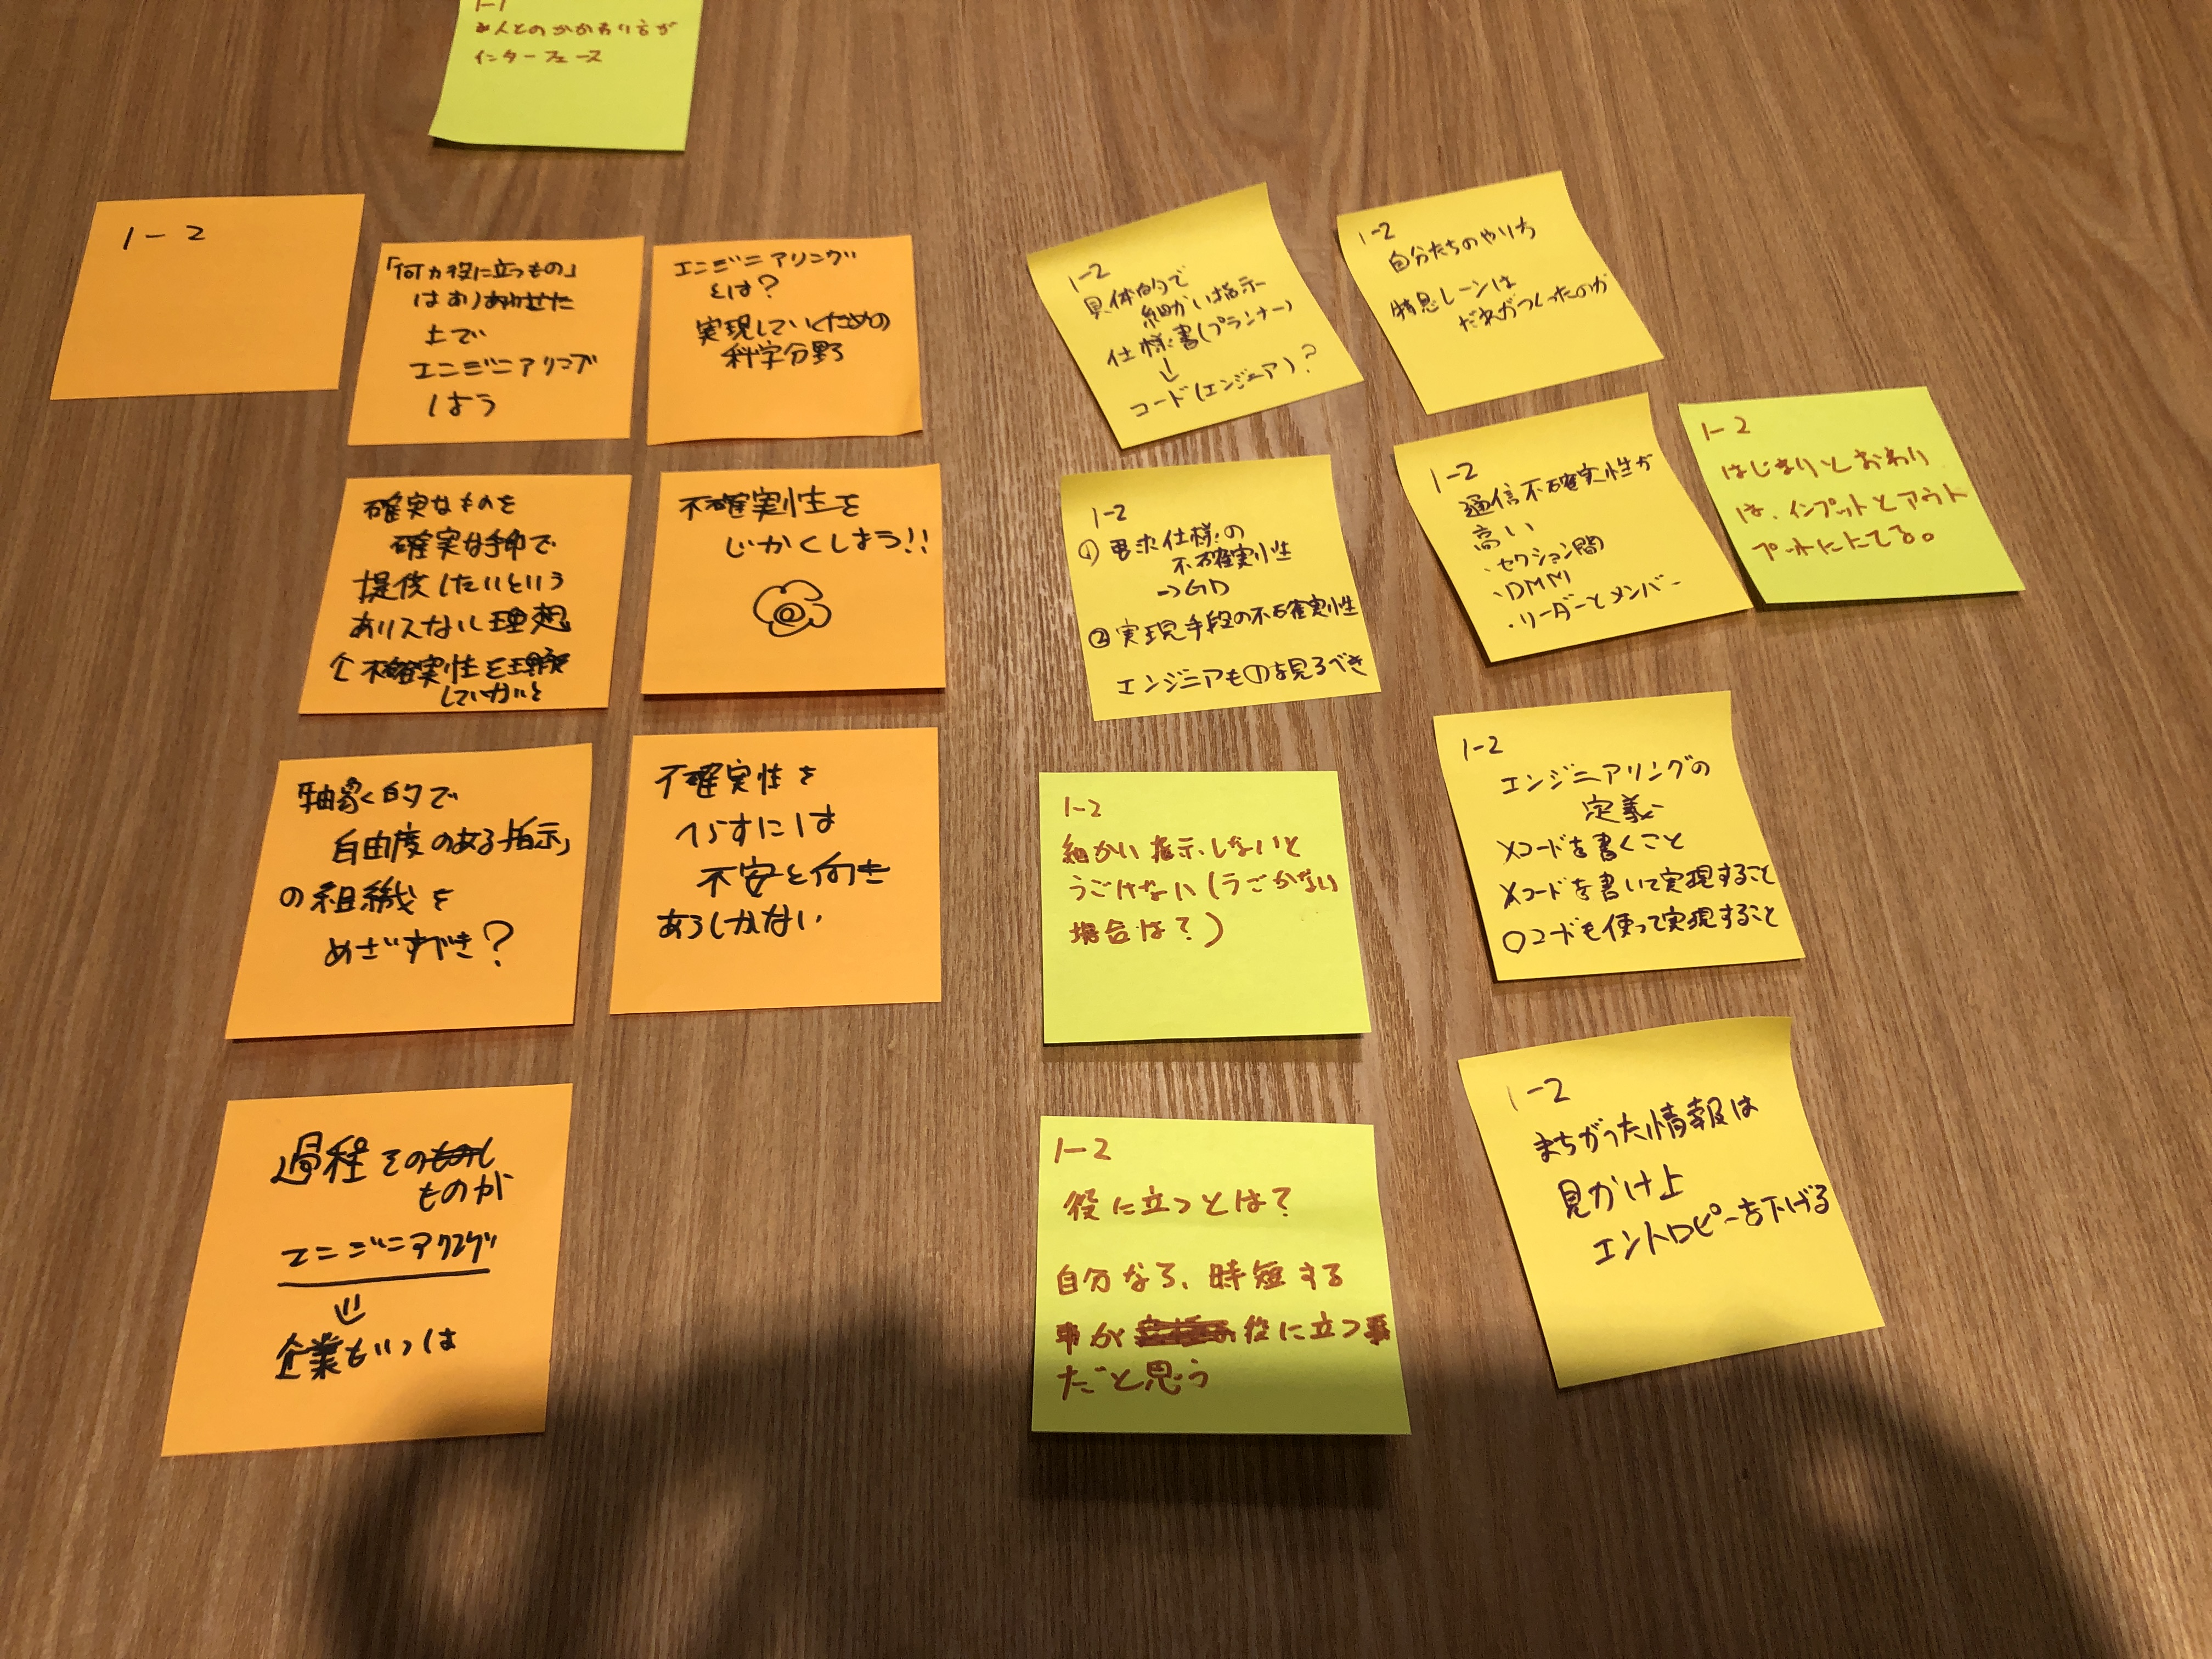 1-1
人とのかかわり方が
インターフェース
1-2
「何か役に立つもの」
はあり
上で
エンジニアリング
しよう
エンジニアリング
とは?
実現していくための
科学分野
確実なものを
確実な手で
提供したいという
ありえない理想
↑不確実性を理解
していないと
不確実性を
じかくしよう!!
「抽象的で
自由度のある指示」
の組織を
めざすべき?
不確実性を
へらすには
不安と向き
あうしかない
過程その
ものが
エンジニアリング
⇓
企業もいっしょ
1-2
具体的で
細かい指示
仕様書(プランナー)
↓
コード(エンジニア)?
1-2
自分たちのやり方
特急レーンは
だれがつくったのか
1-2
① 要求仕様の
不確実性
→GD
② 実現手段の不確実性
エンジニアも①を見るべき
1-2
通信不確実性が
高い
・セクション間
・DMM
・リーダーとメンバー
1-2
はじまりとおわり
は、インプットとアウト
プットににてる。
1-2
細かい指示しないと
うごけない(うごかない
場合は?)
1-2
エンジニアリングの
定義
×コードを書くこと
×コードを書いて実現すること
○コードも使って実現すること
1-2
役に立つとは?
自分なら、時短する
事が 役に立つ事
だと思う
1-2
まちがった情報は
見かけ上
エントロピーを下げる